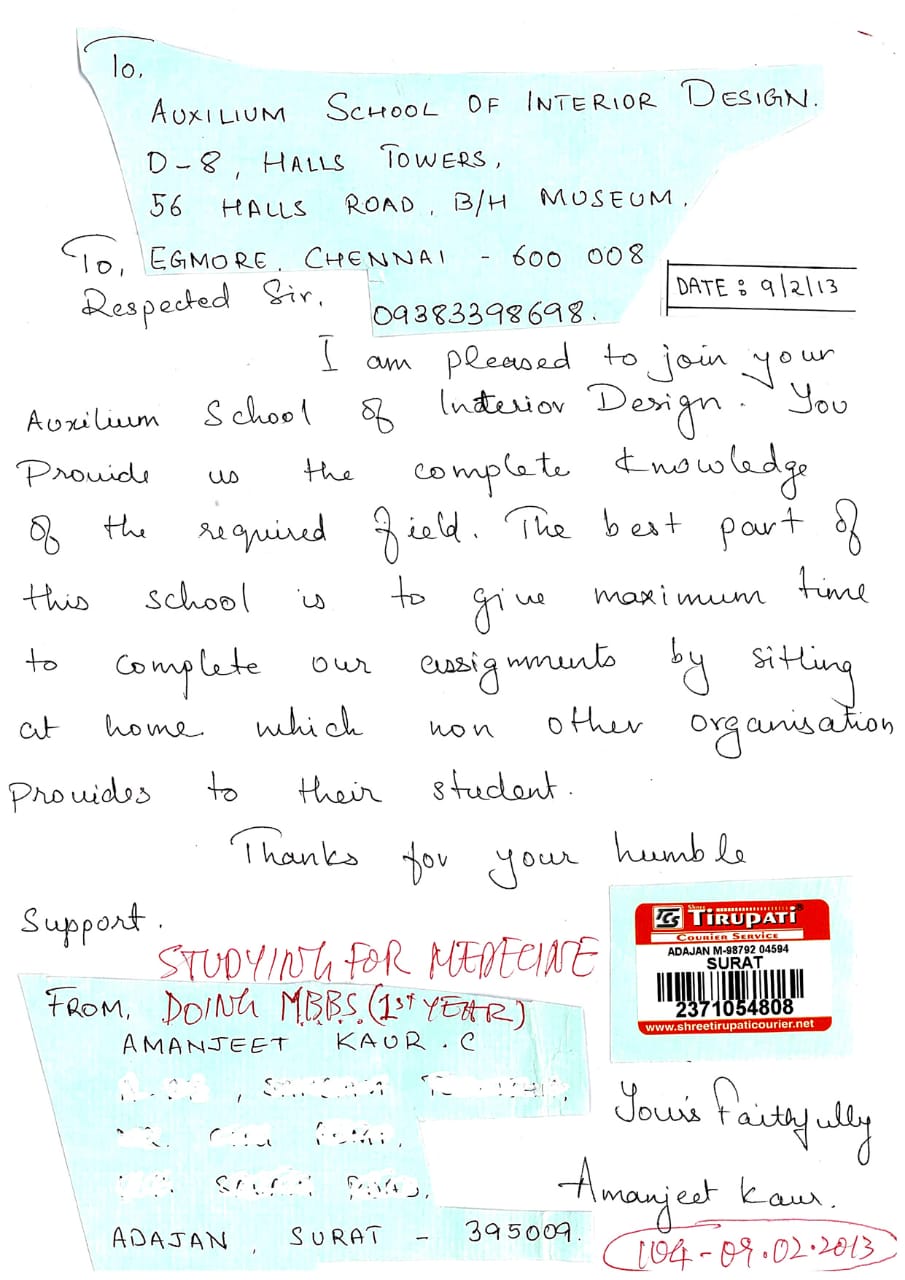 To,
AUXILIUM SCHOOL OF INTERIOR DESIGN.
D-8, HALLS TOWERS,
56 HALLS ROAD, B/H MUSEUM,
EGMORE, CHENNAI - 600 008
09383398698.
DATE : 9/2/13
To,
Respected Sir,
I am pleased to join your
Auxilium School of Interior Design. You
Provide us the complete knowledge
of the required field. The best part of
this school is to give maximum time
to complete our assignments by sitting
at home which non other organisation
Provides to their student.
Thanks for your humble
Support.
STUDYING FOR MEDECINE
FROM, DOING M.B.B.S. (1ST YEAR)
AMANJEET KAUR. C
ADAJAN, SURAT - 395009.
TCS Shree TIRUPATI®
COURIER SERVICE
ADAJAN M-98792 04594
SURAT
2371054808
www.shreetirupaticourier.net
Your's Faithfully
Amanjeet Kaur.
1104-09.02.2013